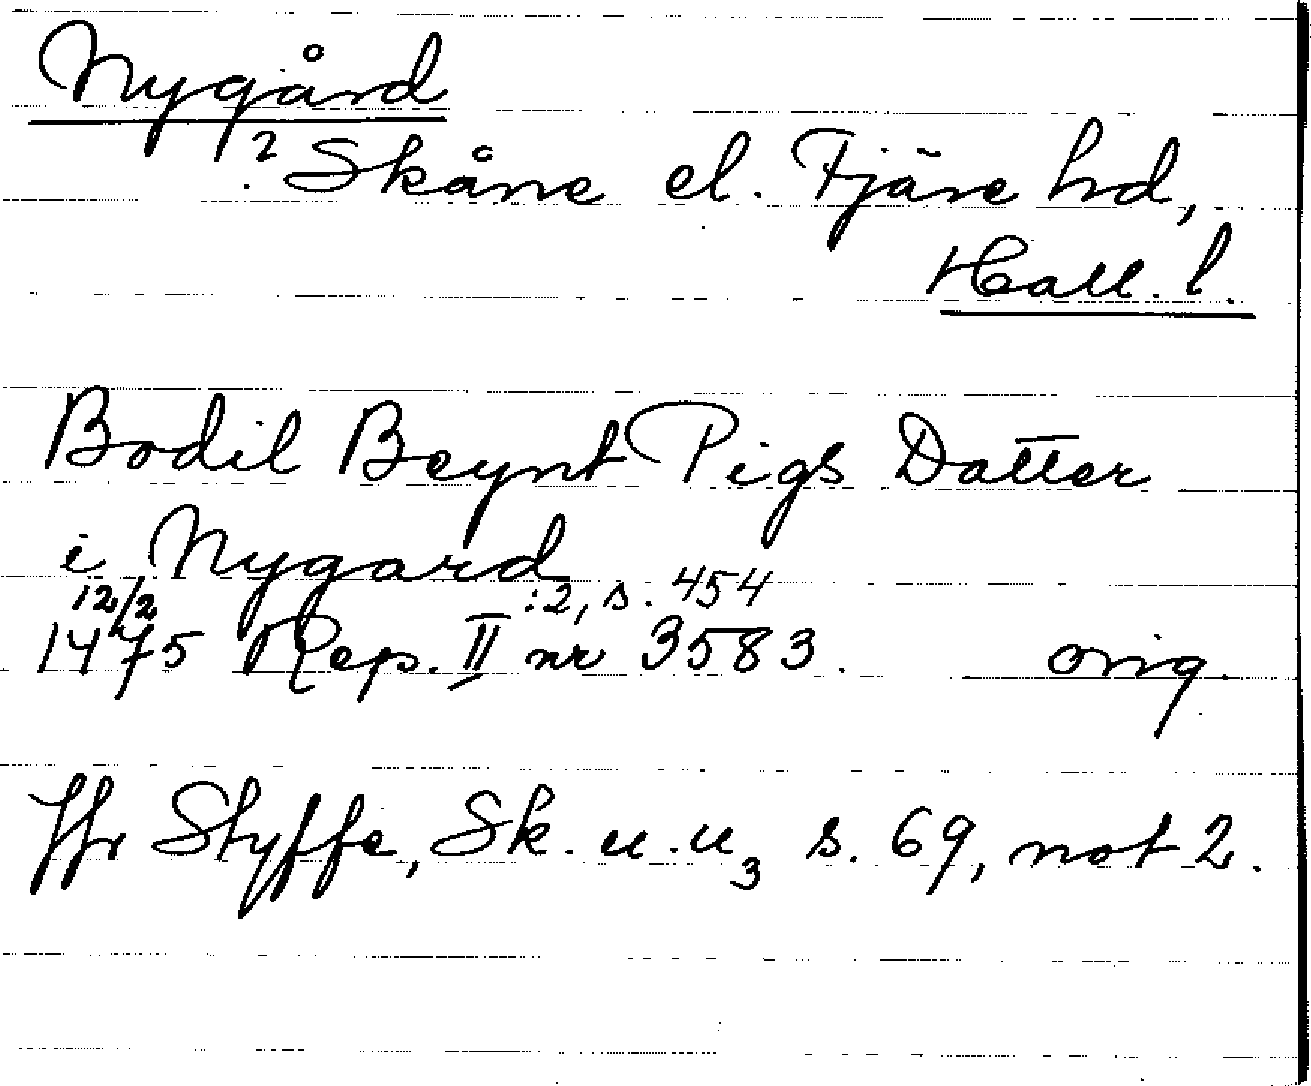 Nygård
? Skåne el. Fjäre hd,
Hall. l.
Bodil Beynt Pigs Datter
i Nygard
12/2 :2, s. 454
1475 Rep. II nr 3583. orig.
Jfr Styffe, Sk. u. u3 s. 69, not 2.